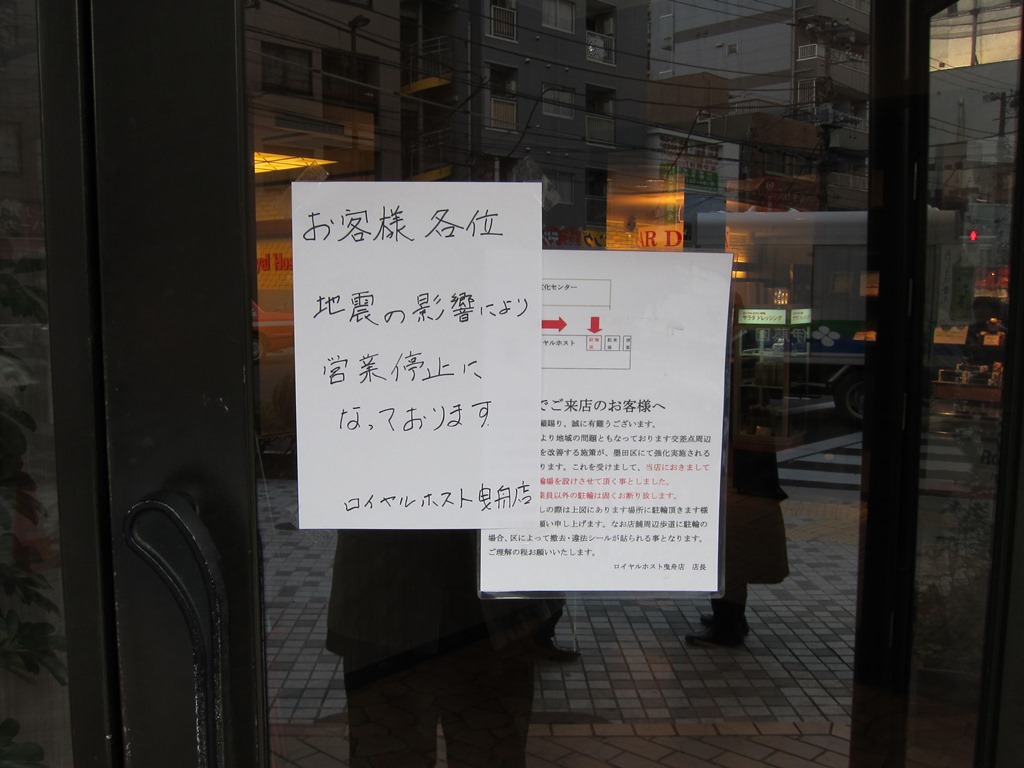 お客様 各位
地震の影響により
営業停止に
なっております
ロイヤルホスト曳舟店
化センター
ヤルホスト
でご来店のお客様へ
賜り、誠に有難うございます。
より地域の問題ともなっております交差点周辺
を改善する施策が、墨田区にて強化実施される
ります。これを受けまして、当店におきまして
輪場を設けさせて頂く事としました。
員以外の駐輪は固くお断り致します。
しの際は上図にあります場所に駐輪頂きます様
願い申し上げます。なお店舗周辺歩道に駐輪の
場合、区によって撤去・違法シールが貼られる事となります。
ご理解の程お願いいたします。
ロイヤルホスト曳舟店 店長
AR D
サラダドレッシング